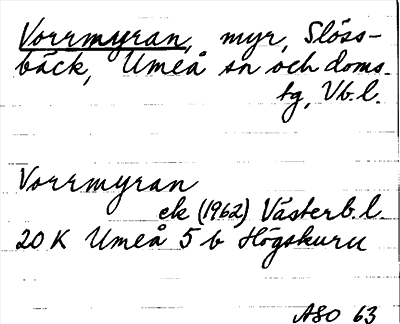 Vorrmyran, myr, Slöss-
bäck, Umeå sn och doms.
tg, Vb.l.
Vorrmyran
ek (1962) Västerb.l.
20 K Umeå 5 b Högskuru
ASO 63